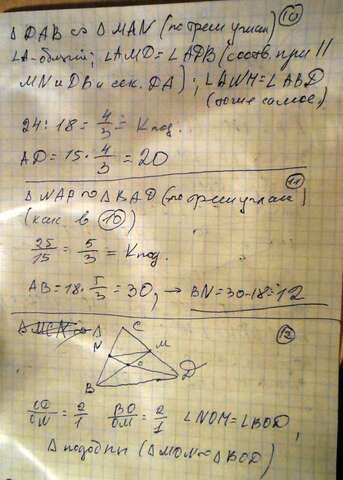 Δ DAB ∾ Δ MAN (по трем углам) (10)
∠A-общий; ∠AMD = ∠ADB (соотв. при ||
MN и DB и сек. DA); ∠ANM = ∠ABD
(тоже самое)
24:18 = 4/3 = Kпод.
AD = 15 · 4/3 = 20
(11)
Δ NAP ∾ Δ BAD (по трем углам)
(как в (10))
25/15 = 5/3 = Kпод.
AB = 18 · 5/3 = 30, → BN = 30-18 = 12
(12)
C
N M
O
B D
/ON = 2/1 BO/OM = 2/1 ∠NOM = ∠BOD,
Δ подобны (Δ MON ∾ Δ BOD)